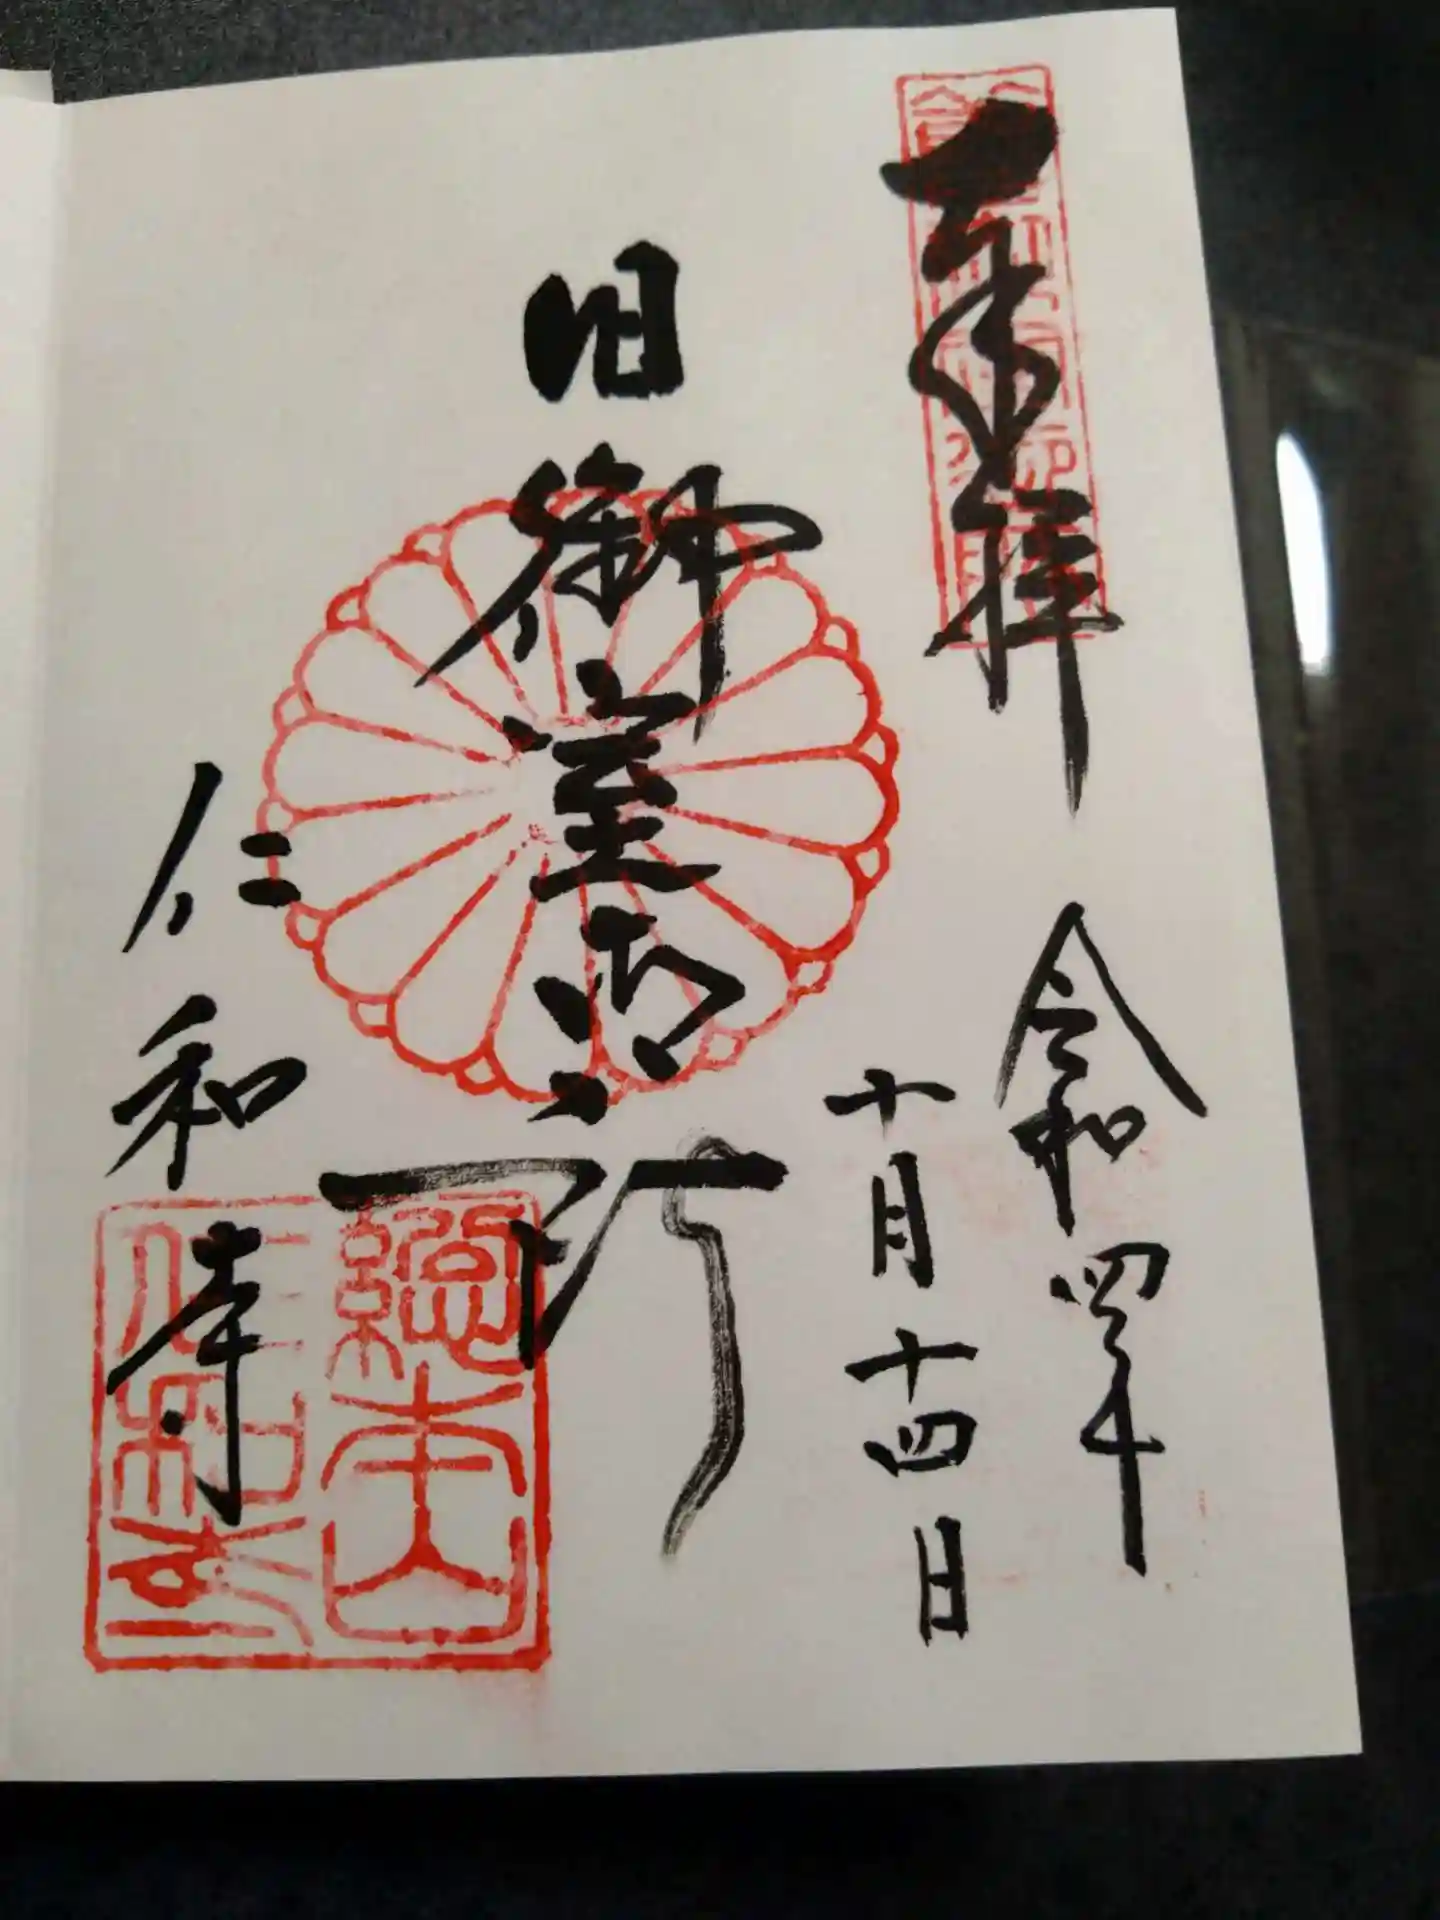 奉拝
令和四年
十月十四日
旧御室御所
仁和寺
總本山
仁和寺